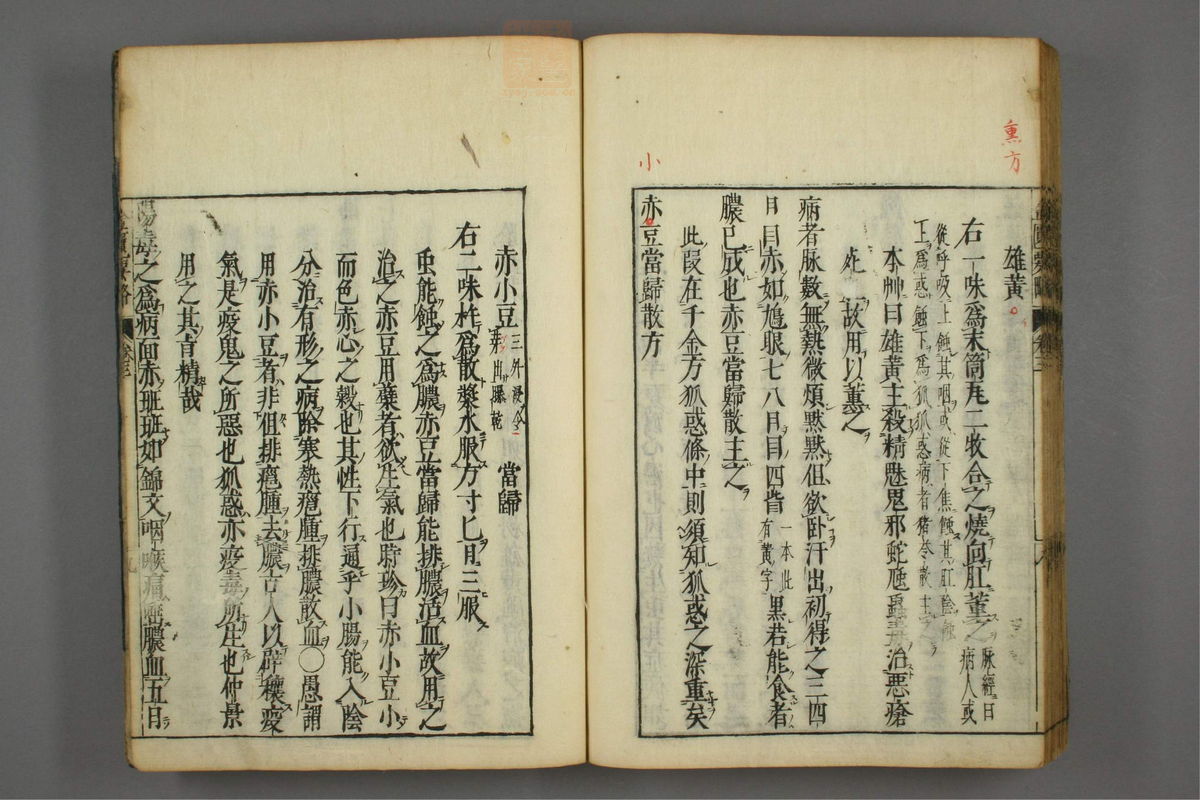 熏方
雄黃
右一味爲末筒瓦二枚合之燒向肛薰之 脉經曰病人或
從呼吸上蝕其咽或從下焦蝕其肛陰蝕
上爲惑蝕下爲狐狐惑病者猪苓散主之
本艸曰雄黃主殺精魅鬼邪蛇虺蟲毒治惡瘡
死
故用以薰之
病者脉數無熱微煩黙黙但欲卧汗出初得之三四
日目赤如鳩眼七八日目四眥 一本此有黃字 黑若能食者
膿已成也赤豆當歸散主之
此段在千金方狐惑條中則須知狐惑之深重矣
小
赤豆當歸散方
赤小豆 三升浸令芽出曝乾 當歸
右二味杵爲散漿水服方寸匕日三服
虫能蝕之爲膿赤豆當歸能排膿活血故用之
治之赤豆用蘖者欲生氣也時珍曰赤小豆小
而色赤心之穀也其性下行通乎小腸能入陰
分治有形之病 寒熱癰腫排膿散血〇愚謂
用赤小豆者非徂排癰腫去膿古人以辟穰疫
氣是疫鬼之所惡也狐惑亦疫毒所生也仲景
用之其肯精哉
陽毒之爲病面赤班班如錦文咽喉痛唾膿血五日
金匱要略 卷三